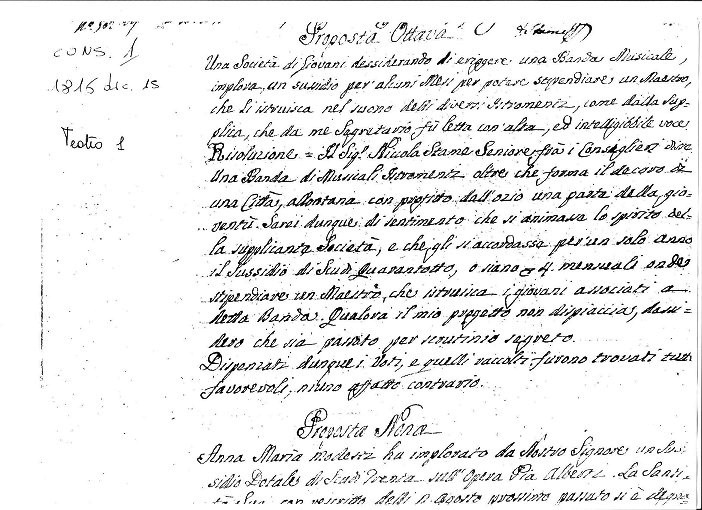 CONS. 1
1816 dic. 15
Teatro 1
Proposta Ottava
Una Società di Giovani dessiderando di eriggere una Banda Musicale,
implora un sussidio per alcuni Mesi per potere stipendiare un Maestro,
che li istruisca nel suono delli diversi Istromenti, come dalla sup=
plica, che da me Segretario fù letta con alta, ed intelligibile voce
Risoluzione = Il Sig. Nicola Stame Seniore frà i Consiglieri dice
Una Banda di Musicali Istromenti oltre che forma il decoro di
una Città, allontana con profitto dall'ozio una parte della gio=
ventù. Sarei dunque di sentimento che si animasse lo spirito del=
la supplicante Società, e che gli si accordasse per un solo anno
il Sussidio di Scudi Quarantotto, o siano 4. mensuali onde
stipendiare un Maestro, che istruisca i giovani associati a
detta Banda. Qualora il mio progetto non dispiaccia, dessi=
dero che sia passato per scrutinio segreto.
Dispensati dunque i Voti, e quelli raccolti furono trovati tutti
favorevoli, niuno affatto contrario.
Proposta Nona
Anna Maria Modesti ha implorato da Nostro Signore un Sus=
sidio Dotale di Scudi Trenta sull'Opera Pia Alberti. La Santi=
tà Sua con rescritto delli 11 Agosto prossimo passato si è degna=